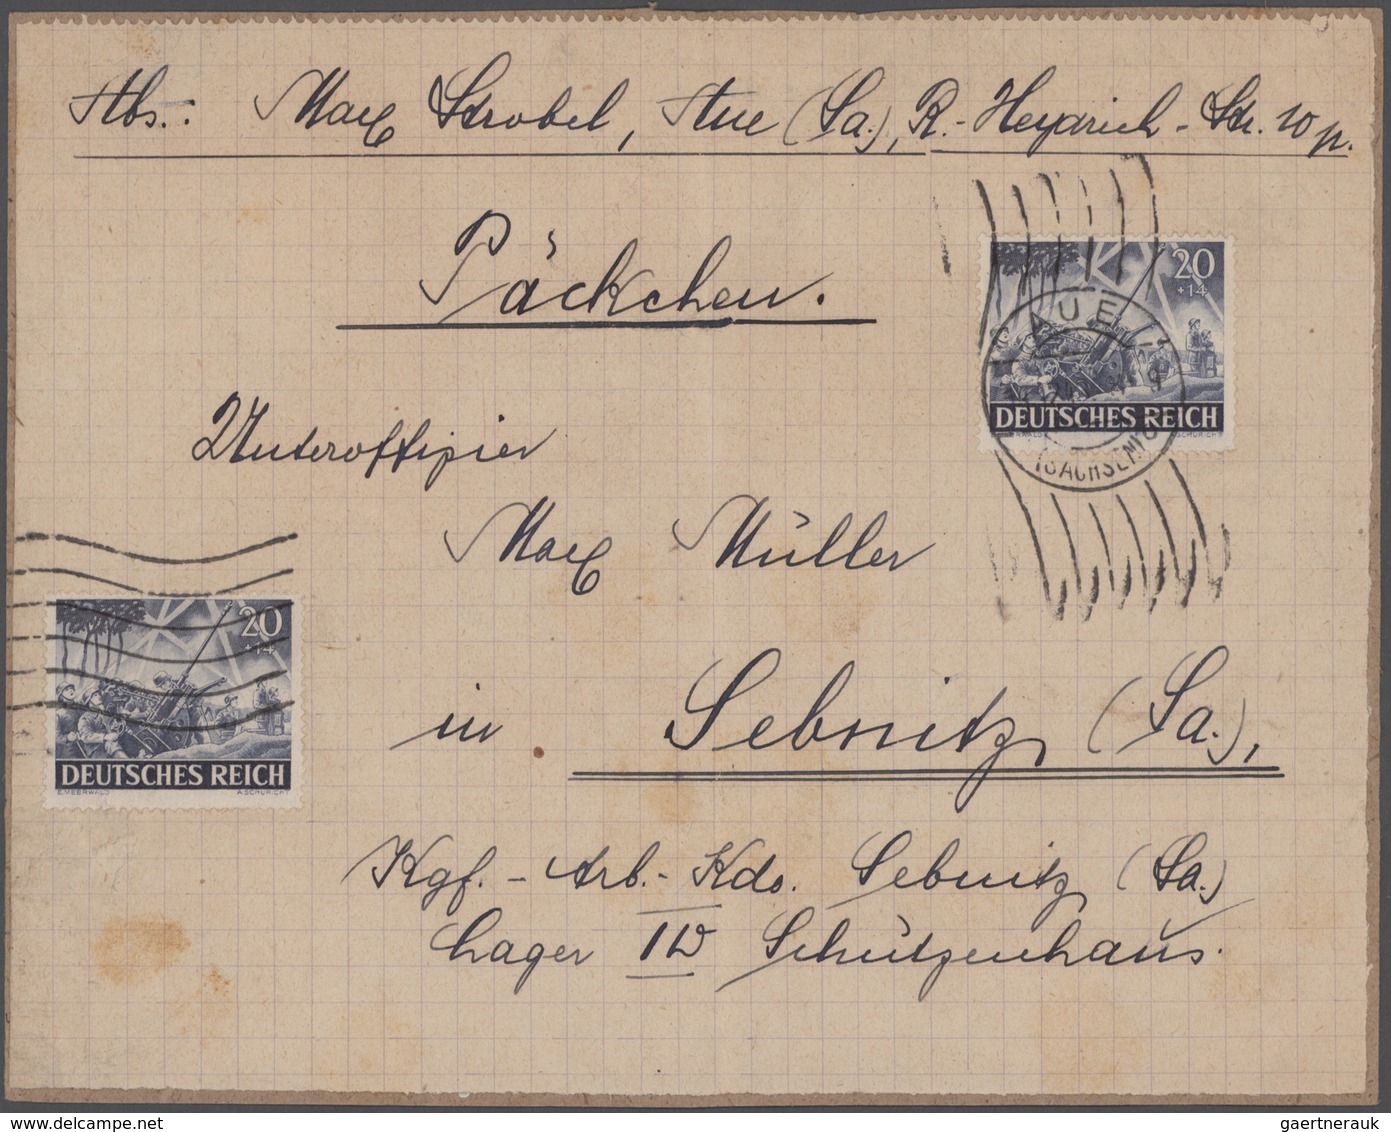 Abs.: Max Strobel, Aue (Sa.), R.-Heydrich-Str. 10 p.
Päckchen.
20
+14
AUE
(SACHSEN)
DEUTSCHES REICH
A.SCHURICHT
Unteroffizier
Max Müller
in Sebnitz (Sa.),
20
+14
DEUTSCHES REICH
E.MEERWALD A.SCHURICHT
Kgf.-Arb.-Kdo. Sebnitz (Sa.)
Lager Schützenhaus.
delcampe.net
gaertnerauk